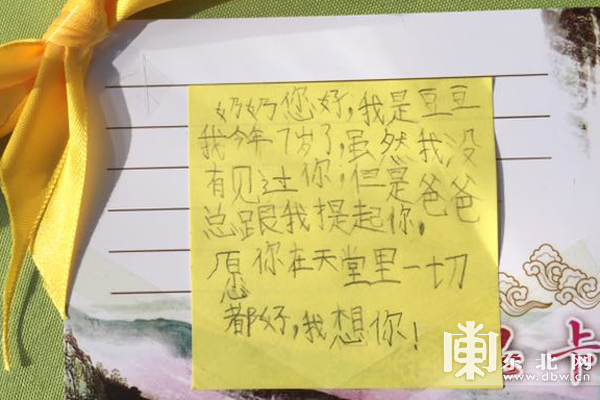 奶奶您好,我是豆豆
我今年7岁了,虽然我没
有见过你,但是爸爸
总跟我提起你。
愿你在天堂里一切
都好,我想你!
卡
东北网
www.dbw.cn